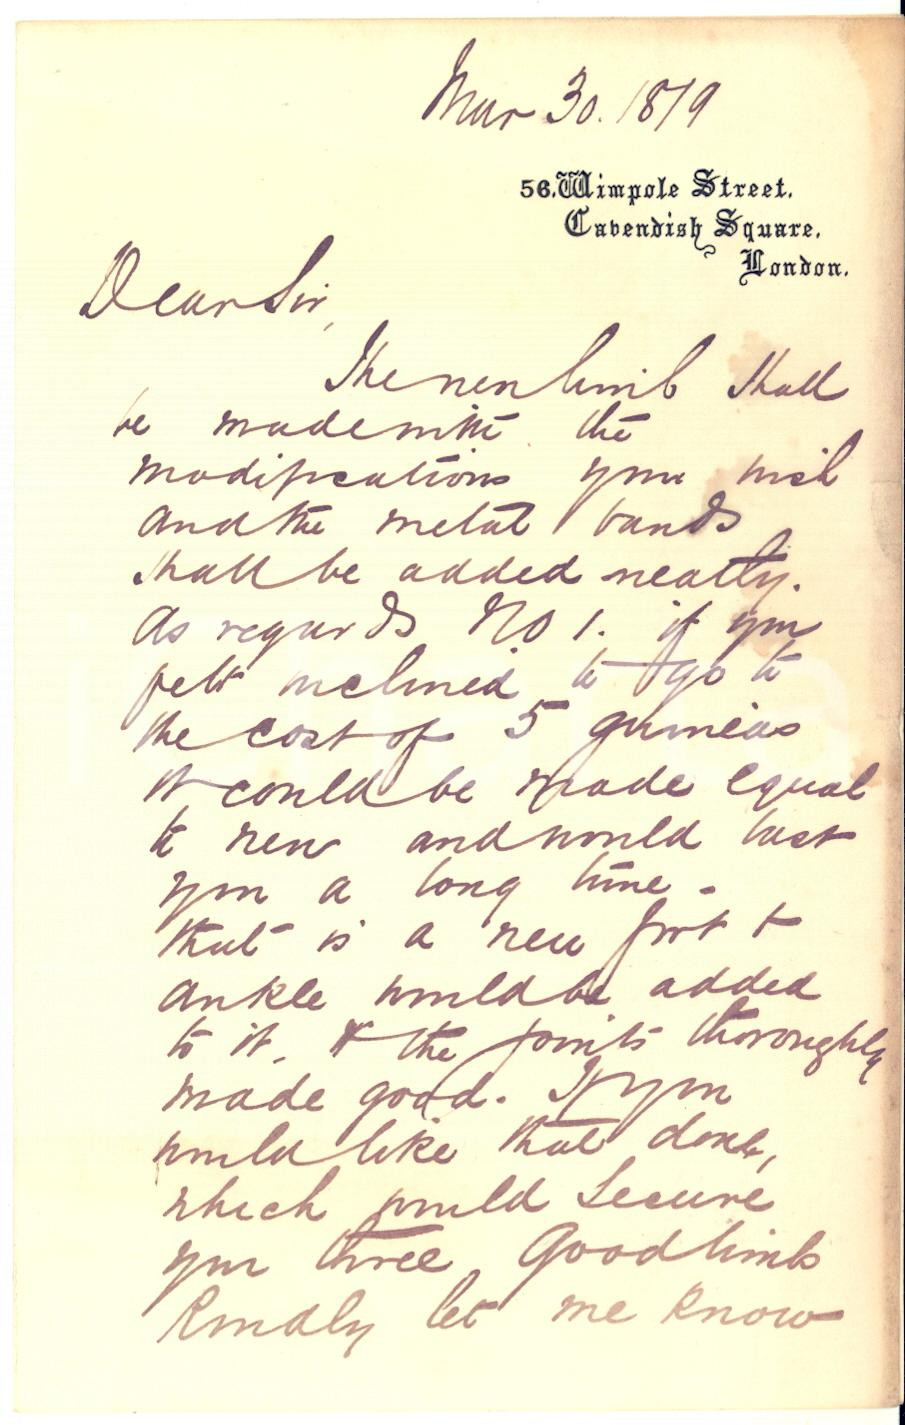 Mar 30. 1879
56. Wimpole Street.
Cavendish Square.
London.
Dear Sir,
The new limb shall
be made with the
modifications you wish
and the metal bands
shall be added neatly.
As regards No 1. if you
felt inclined to go to
the cost of 5 guineas
it could be made equal
to new and would last
you a long time -
that is a new foot &
ankle would be added
to it. & the joints thoroughly
made good. If you
would like that done,
which would secure
you three good limbs
Kindly let me know